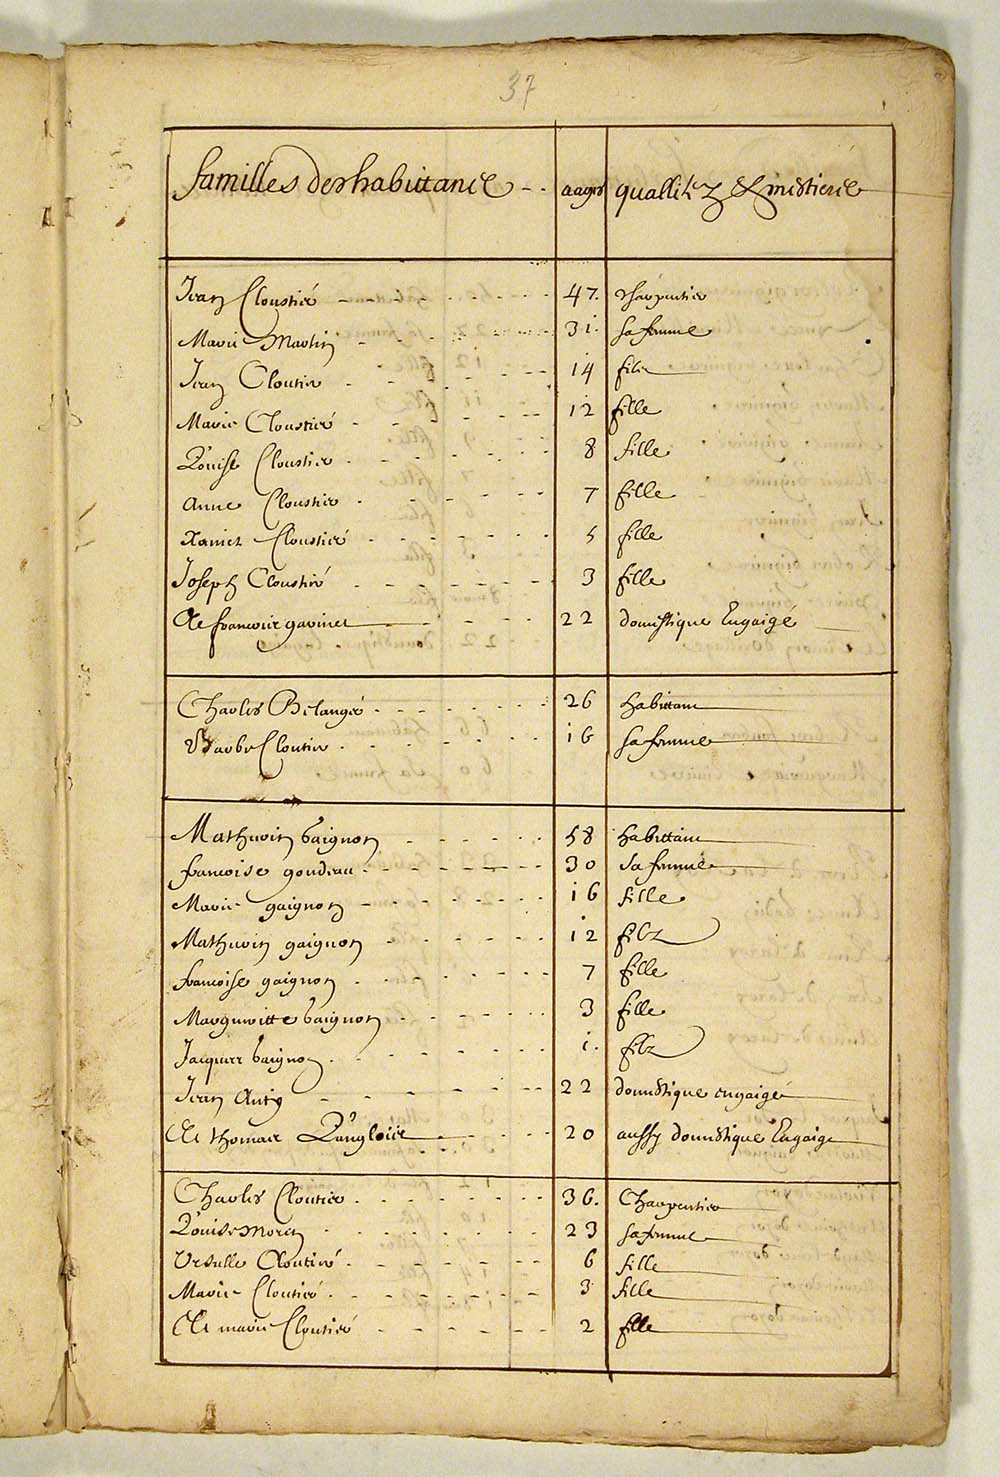 37
familles des habittans aages quallitez & mestiers
Jean Cloustier 47. charpentier
Marie Martin 31. sa femme
Jean Cloutier 14 filz
Marie Cloustier 12 fille
Louise Cloustier 8 fille
Anne Cloustier 7 fille
Xaniet Cloustier 5 fille
Joseph Cloustier 3 fille
Et francois gavinet 22 domestique Engaigé
Charles Belanger 26 habittant
Barbe Cloutier 16 sa femme
Mathurin gaignon 58 habittant
francoise goudeau 30 sa femme
Marie gaignon 16 fille
Mathurin gaignon 12 filz
francoise gaignon 7 fille
Margueritte gaignon 3 fille
Jacques gaignon 1. filz
Jean 22 domestique engaigé
Et thomas Langlois 20 aussy domestique Engaigé
Charles Cloutier 36. Charpentier
Louise Morin 23 sa femme
Ursulle Cloutier 6 fille
Marie Cloutier 3 fille
Et marie Cloutier 2 fille